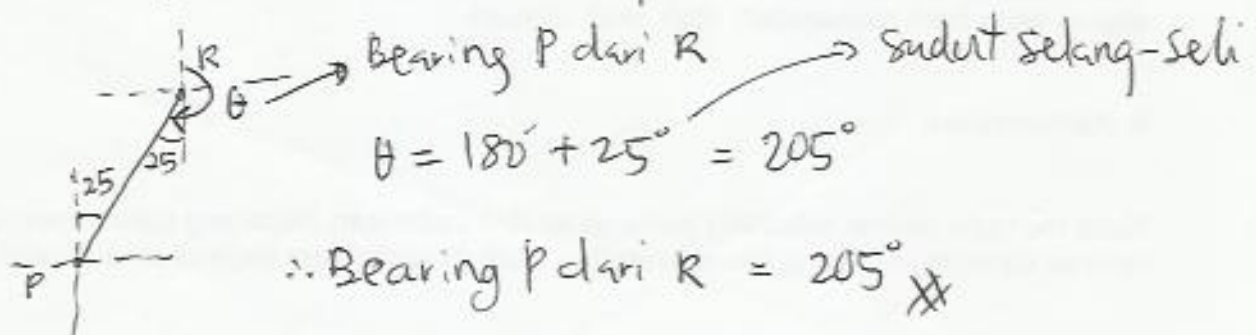 R
θ → Bearing P dari R → Sudut Selang-Seli
25
25
θ = 180° + 25° = 205°
P
∴ Bearing P dari R = 205°